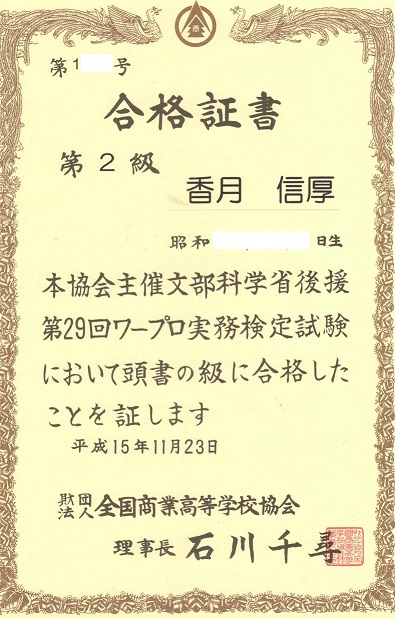 第1 号
合格証書
第2級
香月 信厚
昭和 日生
本協会主催文部科学省後援
第29回ワープロ実務検定試験
において頭書の級に合格した
ことを証します
平成15年11月23日
財団法人全国商業高等学校協会
理事長 石川千尋